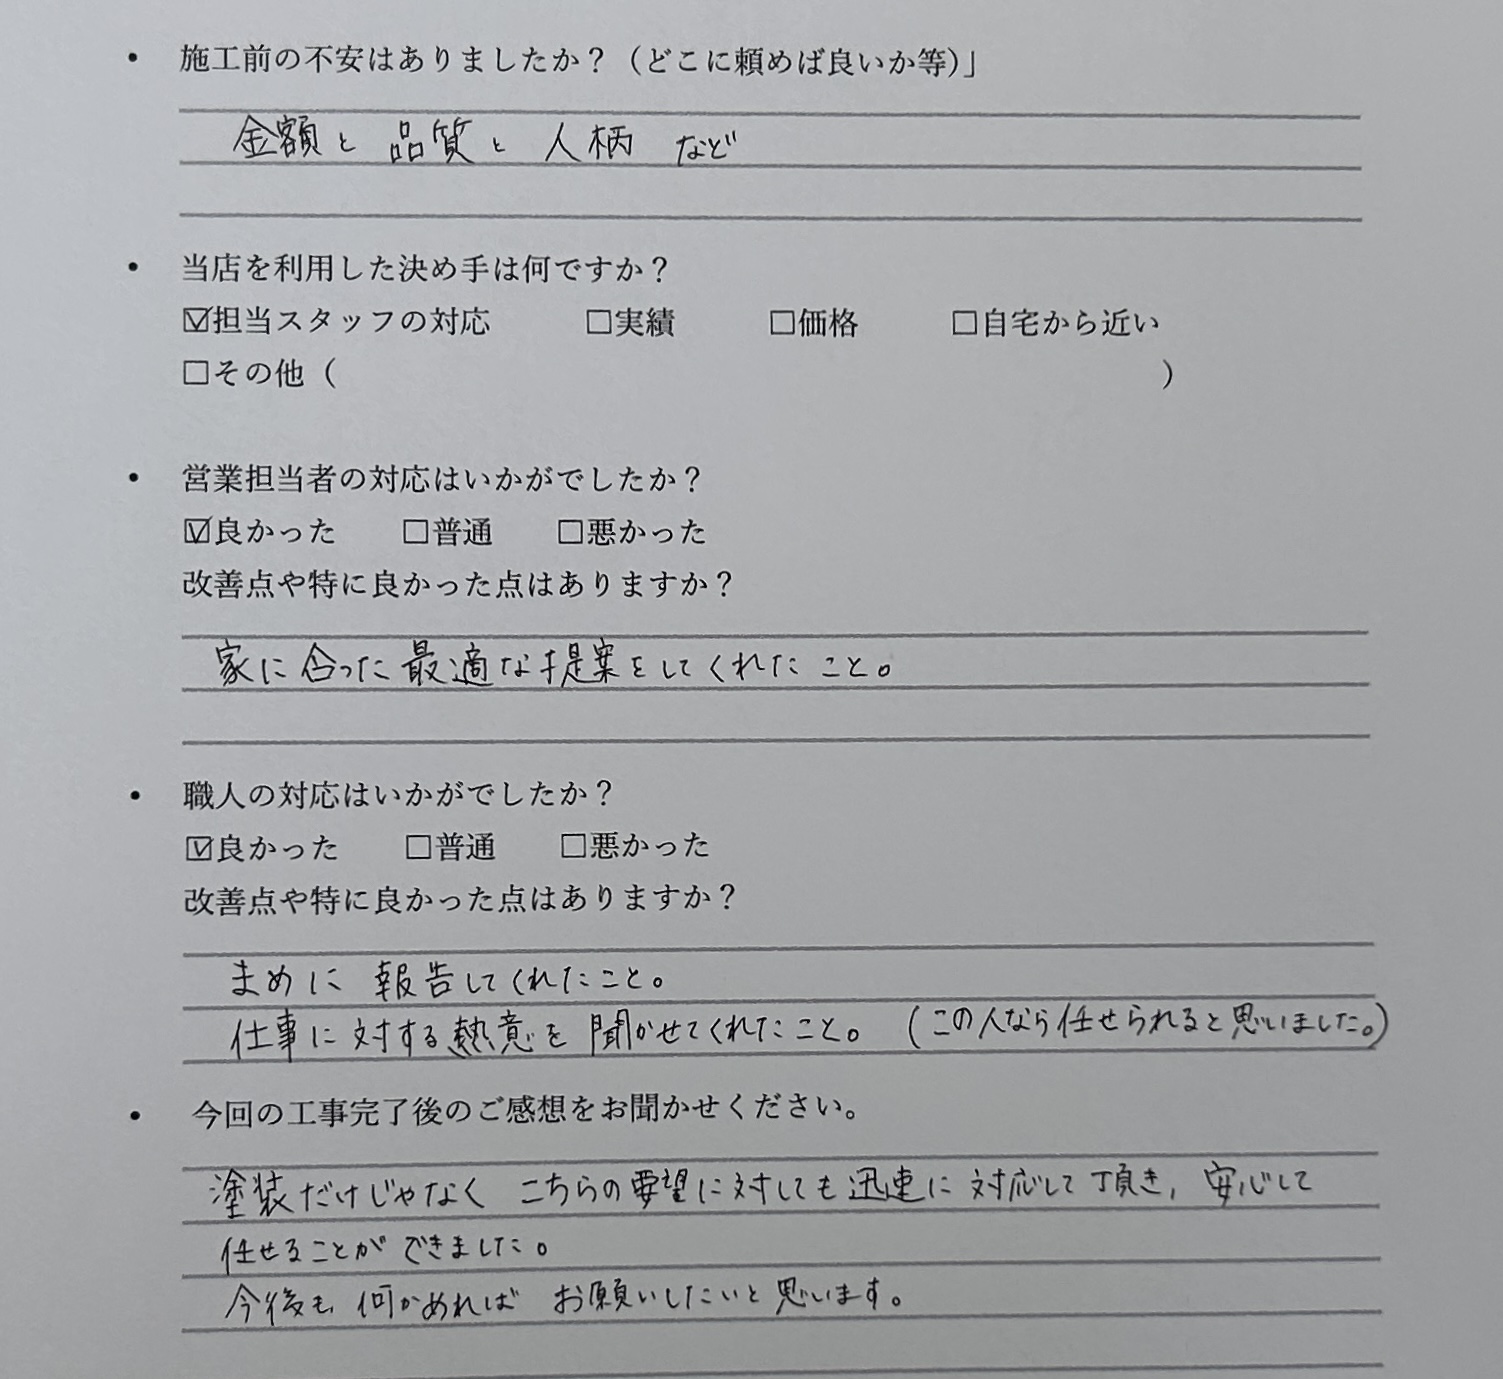 ・ 施工前の不安はありましたか？（どこに頼めば良いか等）」
金額と 品質と 人柄 など
・ 当店を利用した決め手は何ですか？
☑担当スタッフの対応 □実績 □価格 □自宅から近い
□その他（ ）
・ 営業担当者の対応はいかがでしたか？
☑良かった □普通 □悪かった
改善点や特に良かった点はありますか？
家に合った最適な提案をしてくれたこと。
・ 職人の対応はいかがでしたか？
☑良かった □普通 □悪かった
改善点や特に良かった点はありますか？
まめに 報告してくれたこと。
仕事に対する熱意を聞かせてくれたこと。（この人なら任せられると思いました。）
・ 今回の工事完了後のご感想をお聞かせください。
塗装だけじゃなく こちらの要望に対しても迅速に対応して頂き、安心して
任せることができました。
今後も何かあれば お願いしたいと思います。